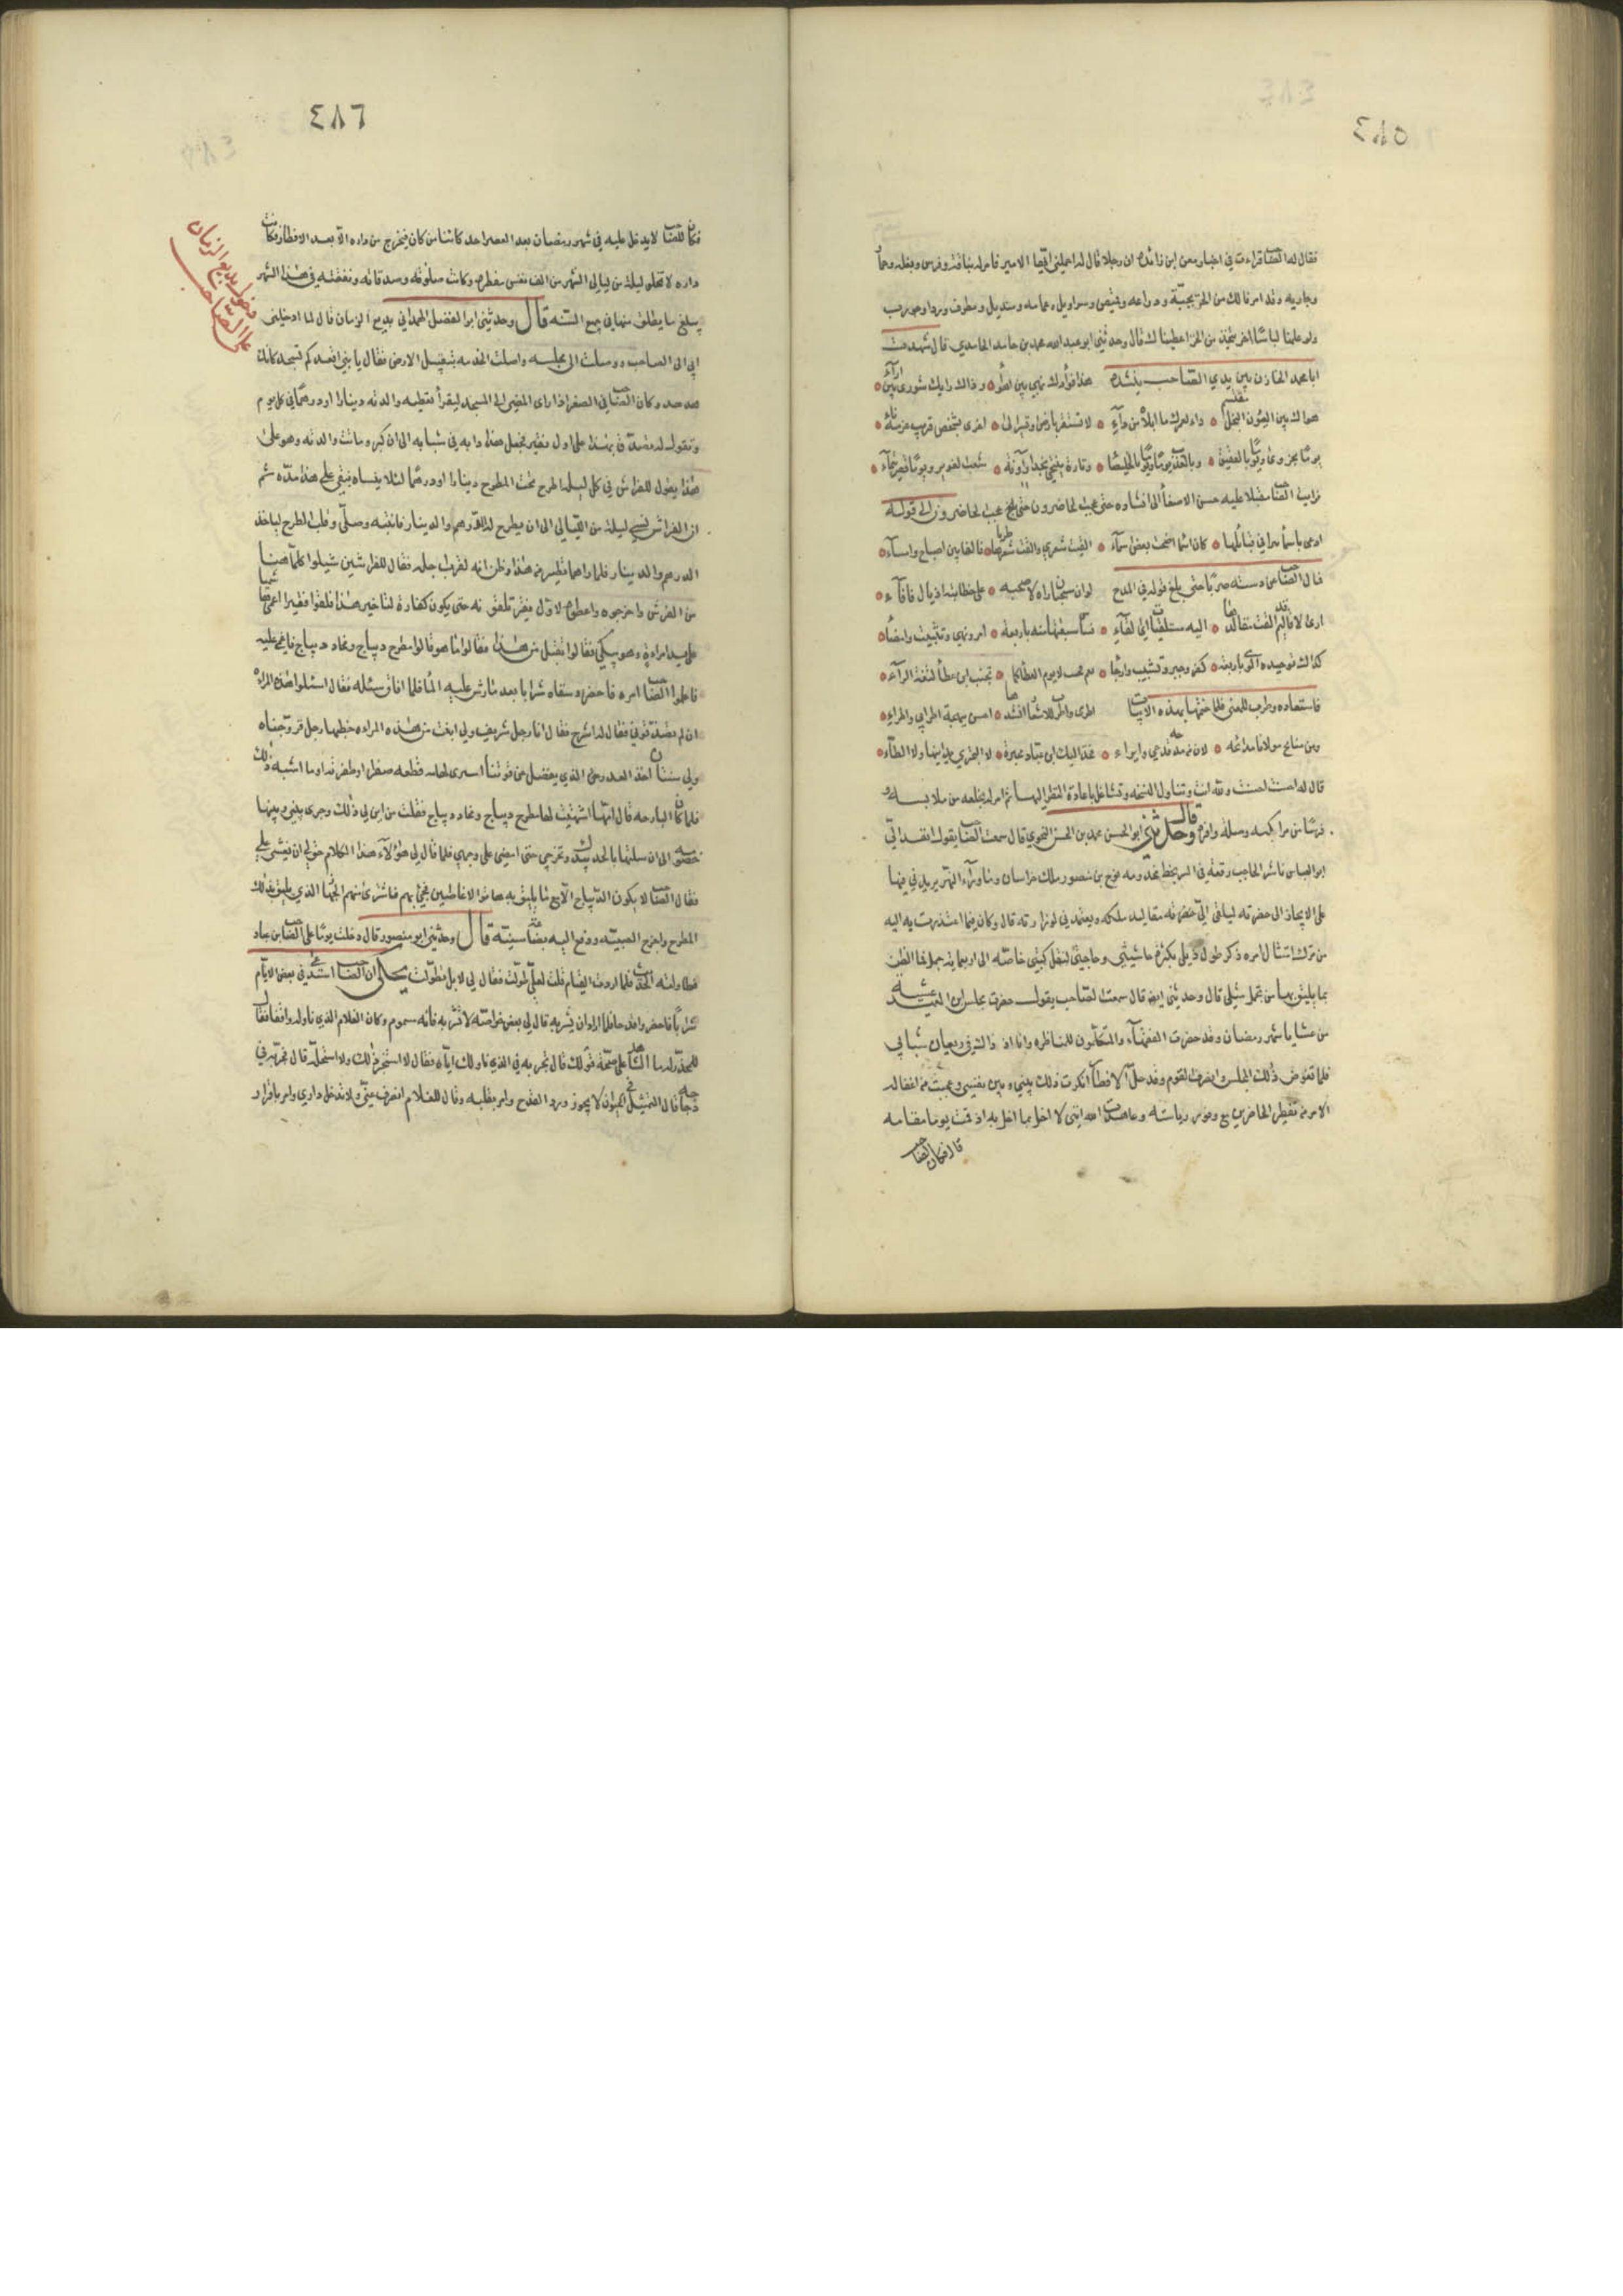 ٤٨٥
فقال له الصاحب قراءت في اخبار معن ابن زائدة ان رجلا قال له احملني ايها الامير فامر له بناقة وفرس وبغله وحمار
وجاريه وقد امرنا لك من الخز بجبّة ودراعه وقميص وسراويل وعمامه ومنديل ومطرف ورداء وجورب
ولو علمنا لباسًا اخر يتخذ من الخز اعطيناك قال وحدثني ابو عبد الله محمد بن حامد الحامدي قال شهدت
ابا محمد الخازن بين يدي الصاحب ينشده هذا فؤادك نهبى بين اهواء وذاك رايك شورى بين آراء
هواك بين العيون النجل مقتسم داء لعمرك ما ابلاه من داء لا تستقر بارض او تسير الى اخرى بشخص قريب عزمه نائي
يومًا بحزوى ويومًا بالعقيق وبالعذيب يومًا ويومًا بالخليصاء وتارة ينتحي نجدا وآونة شعب العقيق ويومًا قصر تيماء
فرايت الصاحب مقبلا عليه حسن الاصغاء الى انشاده حتى عجبت الحاضرون حتى بلغ عجب الحاضرون الى قوله
ادعى باسماء نبزا في قبائلها كان اسماء اضحت بعض اسماء الفيت شعري والفت شعرها طربا فالفا بين اصباح وامساء
فمال الصاحب عن دسته طربًا حتى بلغ قوله في المدح لوان سحبان باراه لاسحبه على خطابته اذيال فافاء
ارى لاقاليم القت مقالدها اليه مستلقيات اي القاء فساس سبعتها منه باربعة امر ونهي وتثبيت وامضاء
كذاك توحيده الوى باربعة كفر وجبر وتشبيه وارجاء نعم تجنب لا يوم العطاء كما تجنب ابن عطاء لثغة الراء
فاستعاده وطرب للمعنى فلما ختمها بهذه الابيات اطرى واطرب للاشعار انشدها احسن ببهجة اطرابي واطرائي
ومن منائح مولانا مدائحه لان من زنده قدحي وايرائي فخذ اليك ابن عباد محبرة لا البحتري يدانيها ولا الطائي
قال له احسنت احسنت ولله انت وتناول النسخه وتشاغل باعادة النظر اليها ثم امر له بخلعه من ملابسه و
فرسًا من مراكبه وصلة وافرة قال وحدثني ابو الحسن محمد بن الحسن النحوي قال سمعت الصاحب يقول انفذ اليّ
ابو العباس تاش الحاجب رقعة في السر بخط مخدومه نوح بن منصور ملك خراسان وماوراء النهر يريدني فيها
على الانحياز الى حضرته ليلقي اليّ مقاليد ملكه ويعتمدني لوزارته قال وكان فيما اعتذرت به اليه
من ترك امتثال امره ذكر طول ذيلي بكثرة حاشيتي وحاجتي لنقل كتبي خاصه الى اربعمايه جمل فما الظن
بما يليق بها من تجمل مثلي قال وحدثني ايضا قال سمعت الصاحب يقول حضرت مجلس ابن العميد عشية
من عشايا شهر رمضان وقد حضرت الفقهاء والمتكلمون للمناظره وانا اذ ذاك في ريعان شبابي
فلما تقوض ذلك المجلس وانصرف القوم وقد حل الافطار انكرت ذلك بيني وبين نفسي وعجبت من اغفاله
الامر من تفطير الحاضرين مع وفور رياسته وعاهدت الله انني لا اخل بما اخل به اذ قمت يوما مقامه
قال فكان الصاحب
٤٨٦
فكان الصاحب لا يدخل عليه في شهر رمضان بعد العصر احد كائنا من كان فيخرج من داره الا بعد الافطار وكانت
داره لا تخلو ليلة من ليالي الشهر من الف نفس مفطره وكانت صلوته وصدقاته ونفقته في هذا الشهر
يبلغ ما يطلق منها في جميع السنه قال وحدثني ابو الفضل الهمداني بديع الزمان قال لما ادخلني
ابي الى الصاحب ووصلت الى مجلسه واصلت الخدمه بتقبيل الارض فقال يا بني اقعد كم تسجد كانك
هدهد وكان الصاحب في الصغر اذا راى المضي الى المسجد ليقرأ تعطيه والدته دينارا او درهمًا في كل يوم
وتقول له تصدق بهذا على اول فقير فجعل هذا دابه في شبابه الى ان كبر وماتت والدته وهو على
هذا يقول للفراش في كل ليله اطرح تحت المطرح دينارا او درهما لئلا ينساه فبقي على هذا مدّه ثم
ان الفراش نسي ليلة من الليالي الى ان يطرح له الدرهم والدينار فانتبه وصلّى وقلب المطرح لياخذ
الدرهم والدينار فلما راهما فتطير من هذا وظن انه لقرب اجله فقال للفراشين شيلوا كلما هنا
من الفرش واخرجوه واعطوه لاول فقير تلقونه حتى يكون كفارة لتاخير هذا فلقوا فقيرا اعمى هاشميا
على يد امراءة وهو يبكي فقالوا تقبل هذا فقال ما هو قالوا مطرح ديباج ومخاد ديباج فاغمي عليه
فاعلموا الصاحب امره فاحضره وسقاه شرابا بعد ما رش عليه الماء فلما افاق سئله فقال اسئلوا هذه المراءة
ان لم تصدقوني فقال له اشرح فقال انا رجل شريف ولي ابنة من هذه المراءة خطبها رجل فزوجناه
ولي سنتان اخذ القدر الذي يفضل من قوتنا اشتري لها به قطعه صفر او طفرنده او ما اشبه ذلك
فلما كان البارحه قال امها اشتهيت لها مطرح ديباج ومخاد ديباج فقلت من اين لي ذلك وجرى بيني وبينها
خصومه الى ان سئلتها تاخذ بيدي وتخرجني حتى امضي على وجهي فلما قال لي هؤلاء هذا الكلام حق لي ان يغشى علي
فقال الصاحب لا يكون الديباج الا مع ما يليق به هاتوا الانماطيين فجيء بهم فاشترى منهم الجهاز الذي يليق بذلك
المطرح واحضر زوج الصبيه ودفع اليه بضاعة سنيّه قال وحدثني ابو منصور قال دخلت يومًا على الصاحب ابن عباد
فطاولته الحديث فلما اردت القيام قلت لعلي طولت فقال لي لا بل تطولت يحكى ان الصاحب استدعى في بعض الايام
شرابًا فاحضر واقدحا فلما اراد ان يشربه قال لي بعض خواصه لا تشربه فانه مسموم وكان الغلام الذي ناوله واقفا فقال
للمحذر له ما الشاهد على صحة قولك قال تجربه في الذي ناولك اياه فقال لا استجيز ذلك ولا استحله قال فجربه في
دجاجه قال التمثيل في الحيوان لا يجوز ورد القدح وامر بقلبه وقال للغلام انصرف عني ولا تدخل داري وامر باقرار
دخول بديع الزمان
على الصاحب